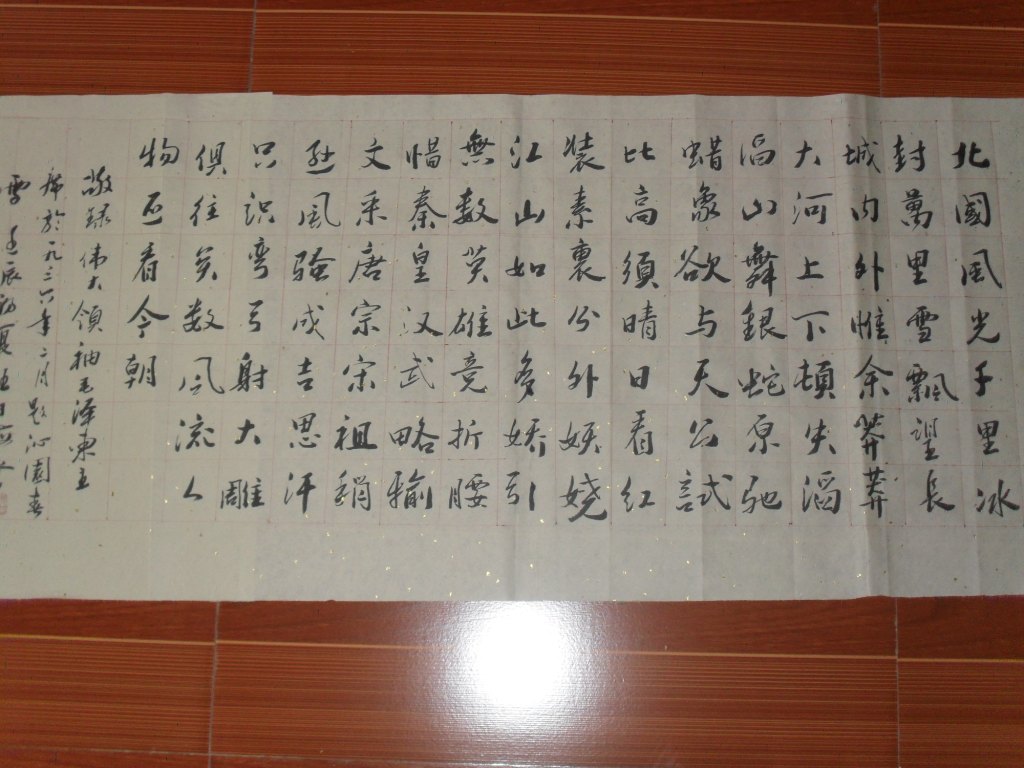 北國風光千里冰
封萬里雪飄望長
城内外惟余莽莽
大河上下頓失滔
滔山舞銀蛇原驰
蜡象欲与天公試
比高須晴日看红
装素裹份外妖娆
江山如此多娇引
無数英雄竞折腰
惜秦皇汉武略输
文采唐宗宋祖稍
逊風骚成吉思汗
只识弯弓射大雕
俱往矣数风流人
物还看今朝
敬録伟大領袖毛泽东主
席於一九三六年二月题沁園春
雪 壬辰初夏